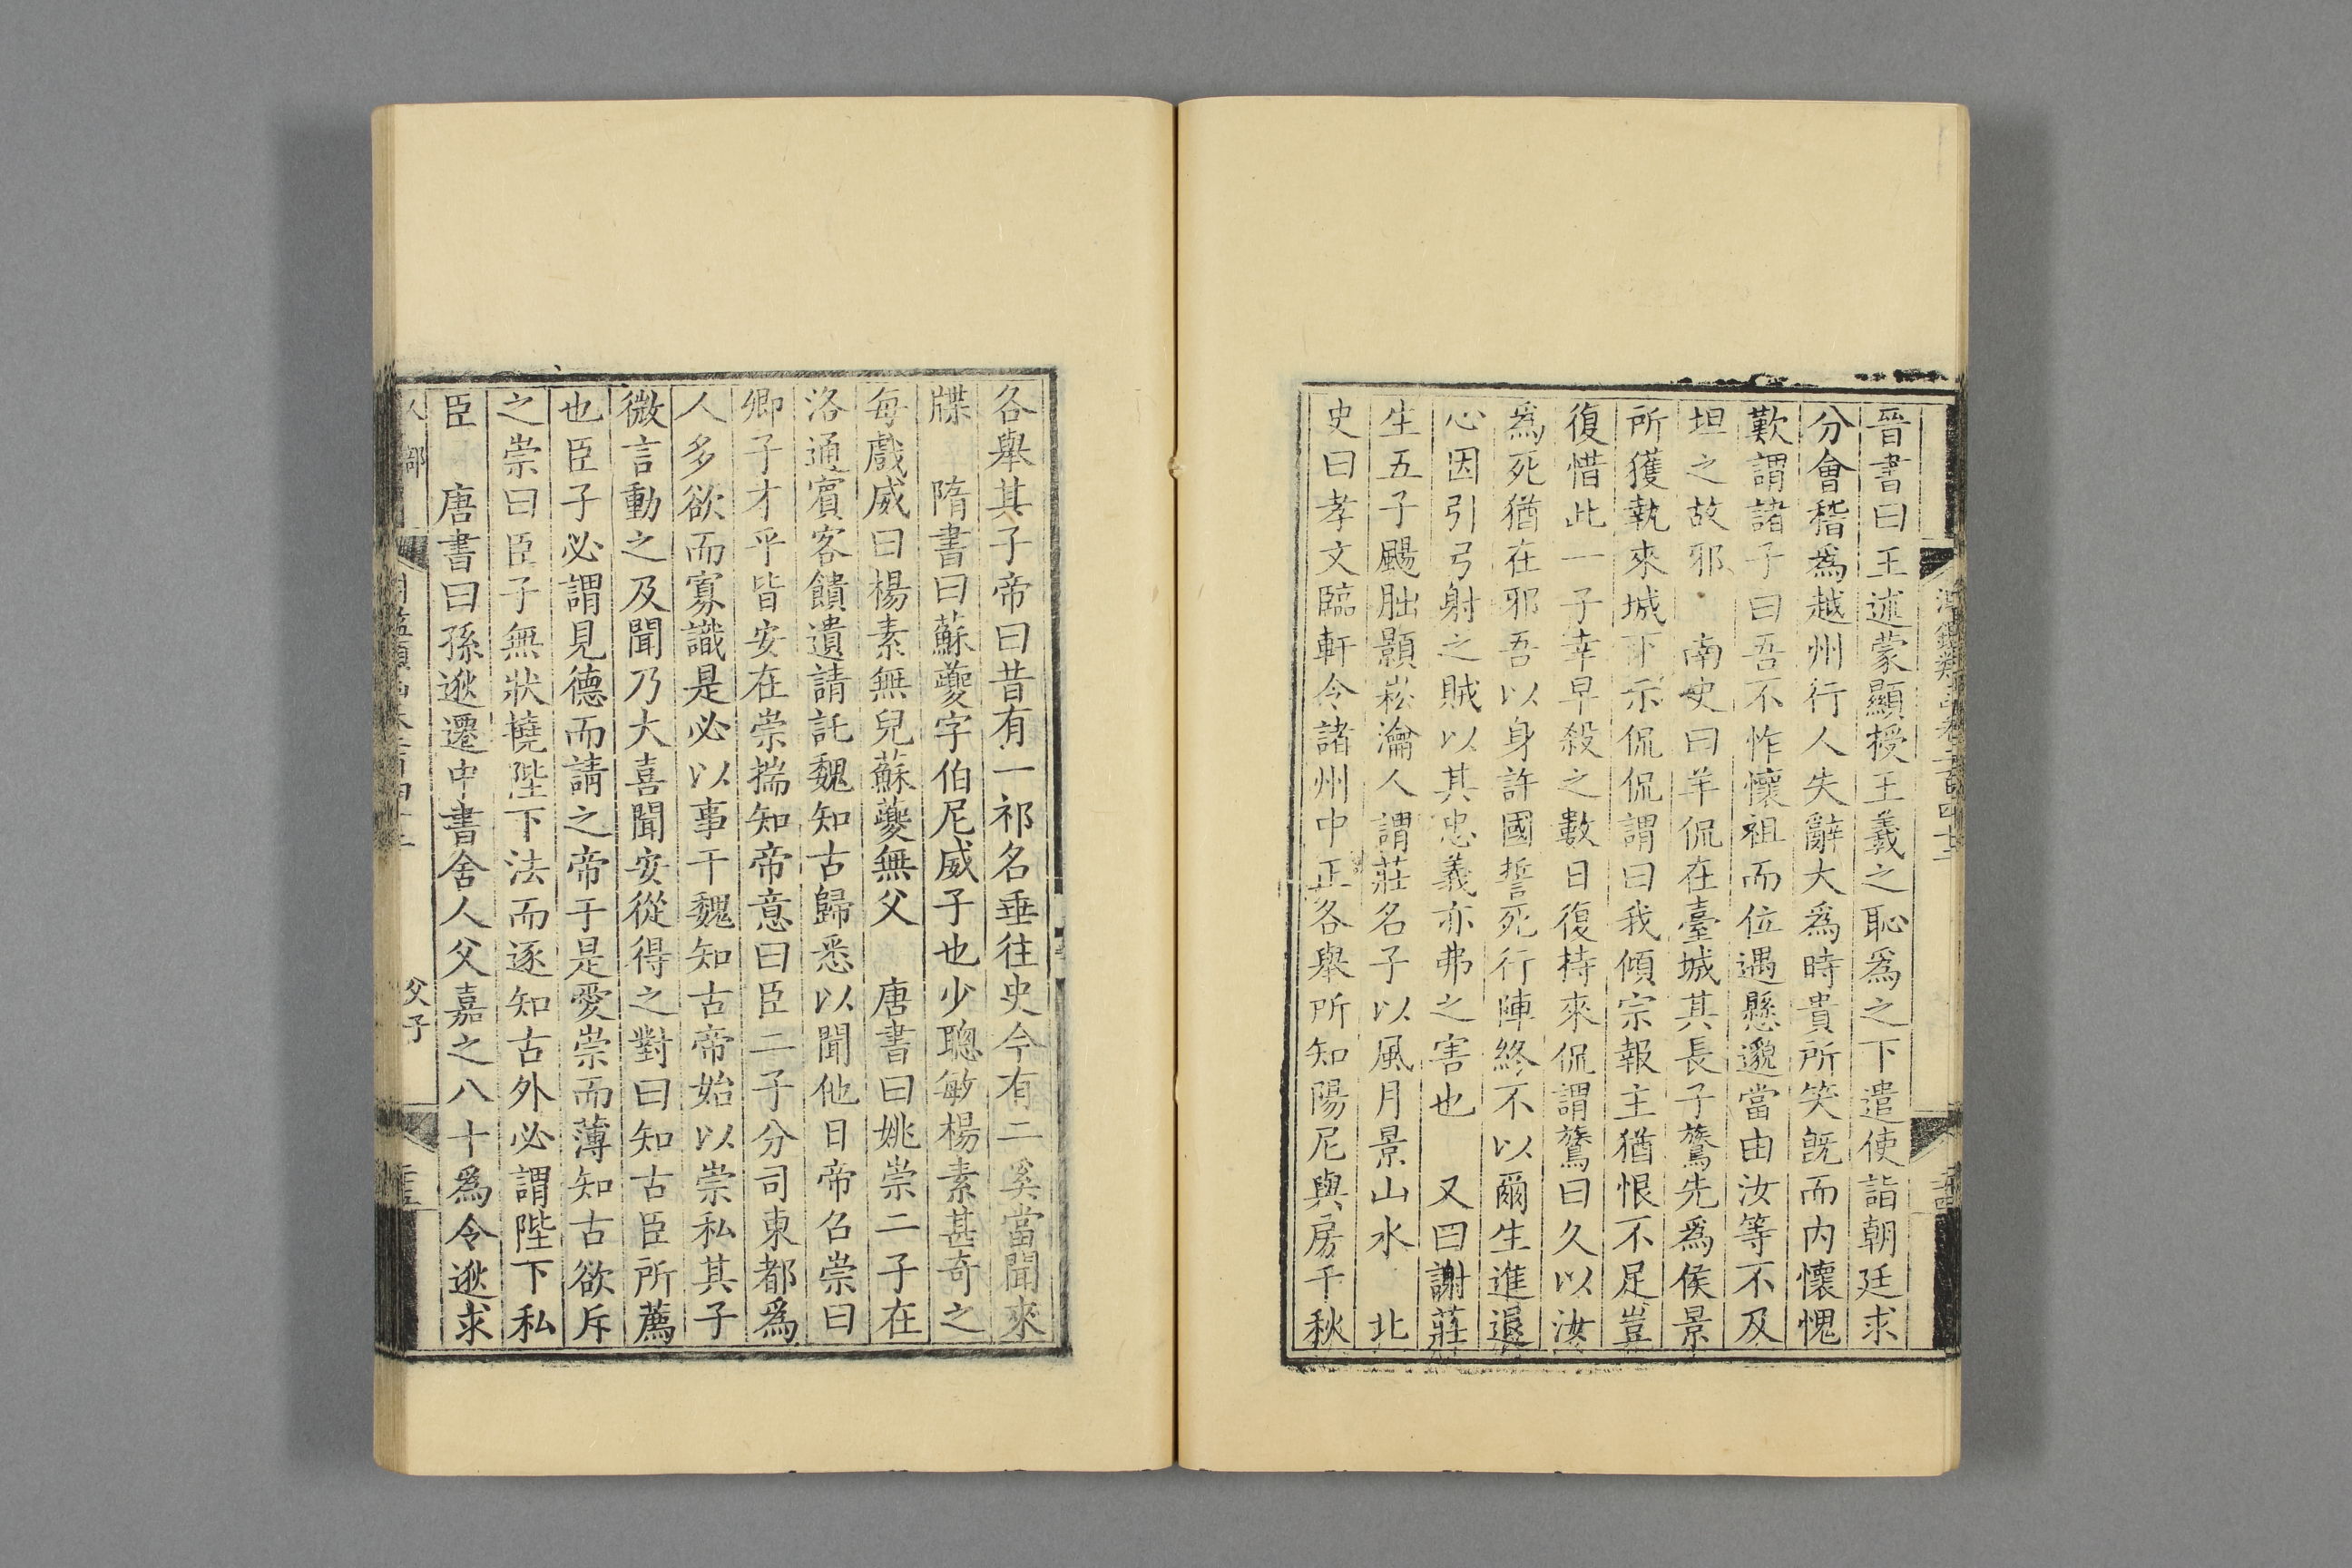 晉書曰王述蒙顯授王羲之恥爲之下遣使詣朝廷求
分會稽爲越州行人失辭大爲時貴所笑旣而內懷愧
歎謂諸子曰吾不怍懷祖而位遇懸邈當由汝等不及
坦之故邪 南史曰羊侃在臺城其長子鷟先爲侯景
所獲執來城下示侃侃謂曰我傾宗報主猶恨不足豈
復惜此一子幸早殺之數日復持來侃謂鷟曰久以汝
爲死猶在邪吾以身許國誓死行陣終不以爾生進退
心因引弓射之賊以其忠義亦弗之害也 又曰謝莊
生五子颺朏顥嵷瀹人謂莊名子以風月景山水 北
史曰孝文臨軒令諸州中正各舉所知陽尼與房千秋
各舉其子帝曰昔有一祁名垂往史今有二奚當聞來
牒 隋書曰蘇夔字伯尼威子也少聰敏楊素甚奇之
每戲威曰楊素無兒蘇夔無父 唐書曰姚崇二子在
洛通賓客饋遺請託魏知古歸悉以聞他日帝召崇曰
卿子才乎皆安在崇揣知帝意曰臣二子分司東都爲
人多欲而寡識是必以事干魏知古帝始以崇私其子
微言動之及聞乃大喜聞安從得之對曰知古臣所薦
也臣子必謂見德而請之帝于是愛崇而薄知古欲斥
之崇曰臣子無狀橈陛下法而逐知古外必謂陛下私
臣 唐書曰孫逖遷中書舍人父嘉之八十爲令逖求
父子